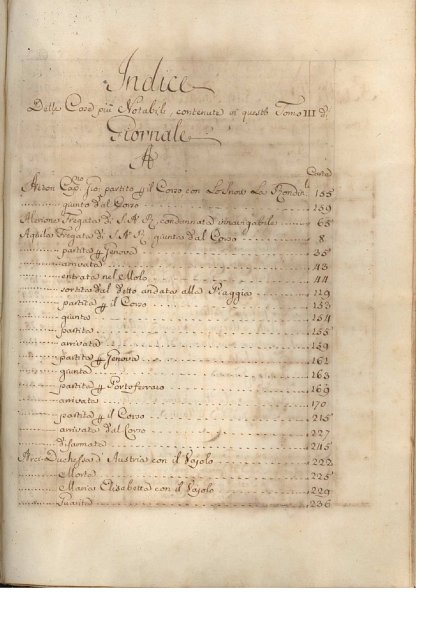 Indice
Delle Cose più Notabili, contenute in questo Tomo III di
Giornale
A
Carta
Cap.no Gio: partito p il Corso con La Rondin. 155
giunto dal Corso 159
Alerione Fregata di S. A. R. condennata innavigabile 65
Aquila Fregata di S. A. R. giunta dal Corso 8
partita p Genova 35
arrivata 43
entrata nel Molo 44
sortita dal detto andata alla Piaggia 129
partita p il Corso 153
giunta 154
partita 155
arrivata 159
partita p Genova 162
giunta 163
partita p Portoferraro 169
arrivata 170
partita p il Corso 215
arrivata dal Corso 227
disarmata 245
Arci-Duchessa d'Austria con il Vajolo 222
Morta 225
Maria Elisabetta con il Vajolo 229
236